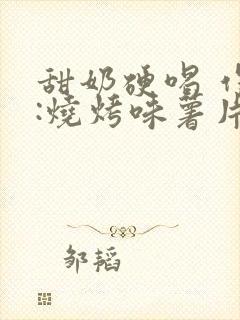 甜奶硬唱
:燒烤味薯片
邹韬